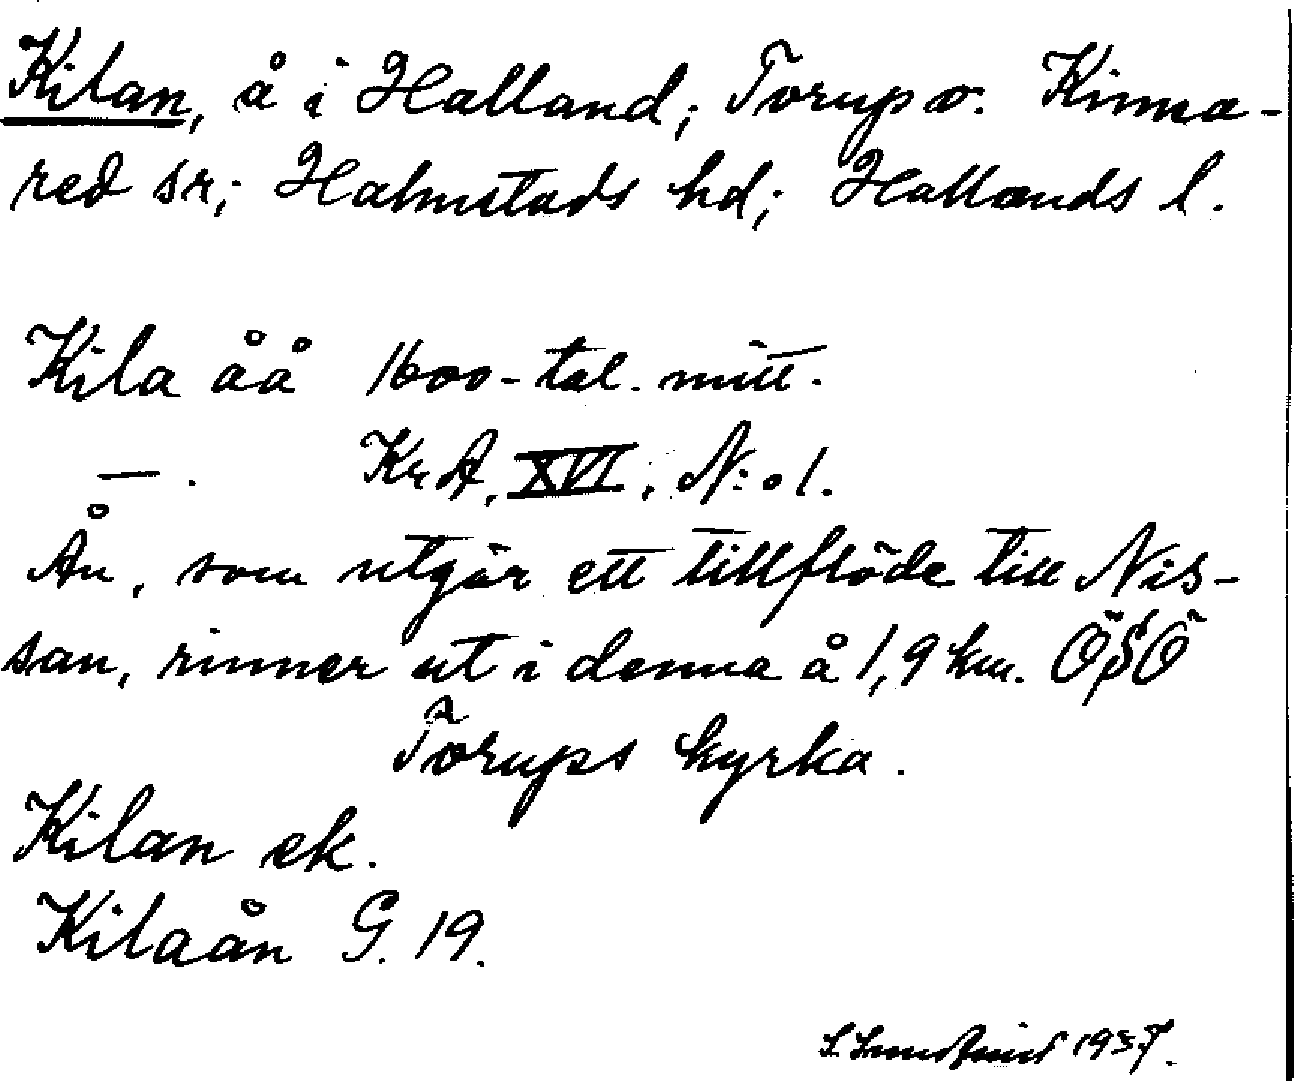 Kilan, å i Halland; Torup o. Kinna-
red sr; Halmstads hd; Hallands l.
Kila åå 1600-tal. mitt.
— . KrA, XVI, N:o 1.
Ån, som utgör ett tillflöde till Nis-
san, rinner ut i denna å 1,9 km. ÖSÖ
Torups kyrka.
Kilan ek.
Kilaån G. 19.
1937.